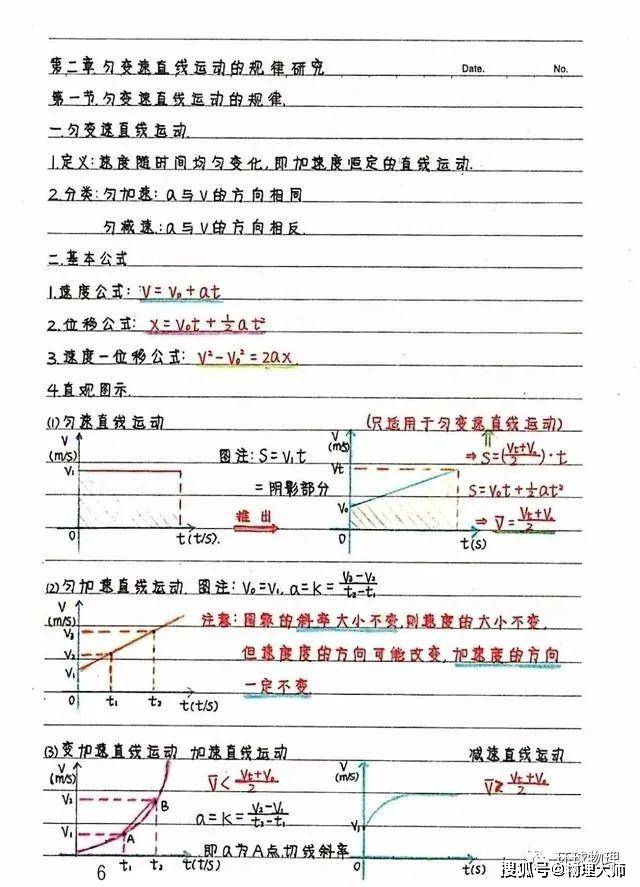 第二章匀变速直线运动的规律研究
Date. No.
第一节匀变速直线运动的规律.
一.匀变速直线运动.
1.定义:速度随时间均匀变化,即加速度恒定的直线运动.
2.分类:匀加速:a与V的方向相同
匀减速:a与V的方向相反.
二.基本公式
1.速度公式: V=V₀+at
2.位移公式: X=V₀t+½at²
3.速度—位移公式: V²-V₀²=2ax.
4.直观图示.
(1)匀速直线运动
V
(m/s)
V₁
0
t(t/s).
图注:S=V₁t
=阴影部分
推出
(只适用于匀变速直线运动)
V
(m/s)
Vt
V₀
0
t(s)
⇒ S=(Vt+V₀/2)·t
S=V₀t+½at²
⇒ V̅=Vt+V₀/2
(2)匀加速直线运动. 图注: V₀=V₁, a=K=V₃-V₂/t₂-t₁
V
(m/s)
V₃
V₂
V₁
0
t₁
t₂
t(t/s)
注意:图象的斜率大小不变,则速度的大小不变,
但速度度的方向可能改变,加速度的方向
一定不变.
(3)变加速直线运动 加速直线运动 减速直线运动
V
(m/s)
V₂
V₁
B
A
0
t₁
t₂
t(t/s)
V̅<Vt+V₀/2
a=K=V₂-V₁/t₂-t₁
即a为A点切线斜率
V
(m/s)
V₁
0
t(s)
Vt+V₀/2
6
环球物理
搜狐号@物理大师